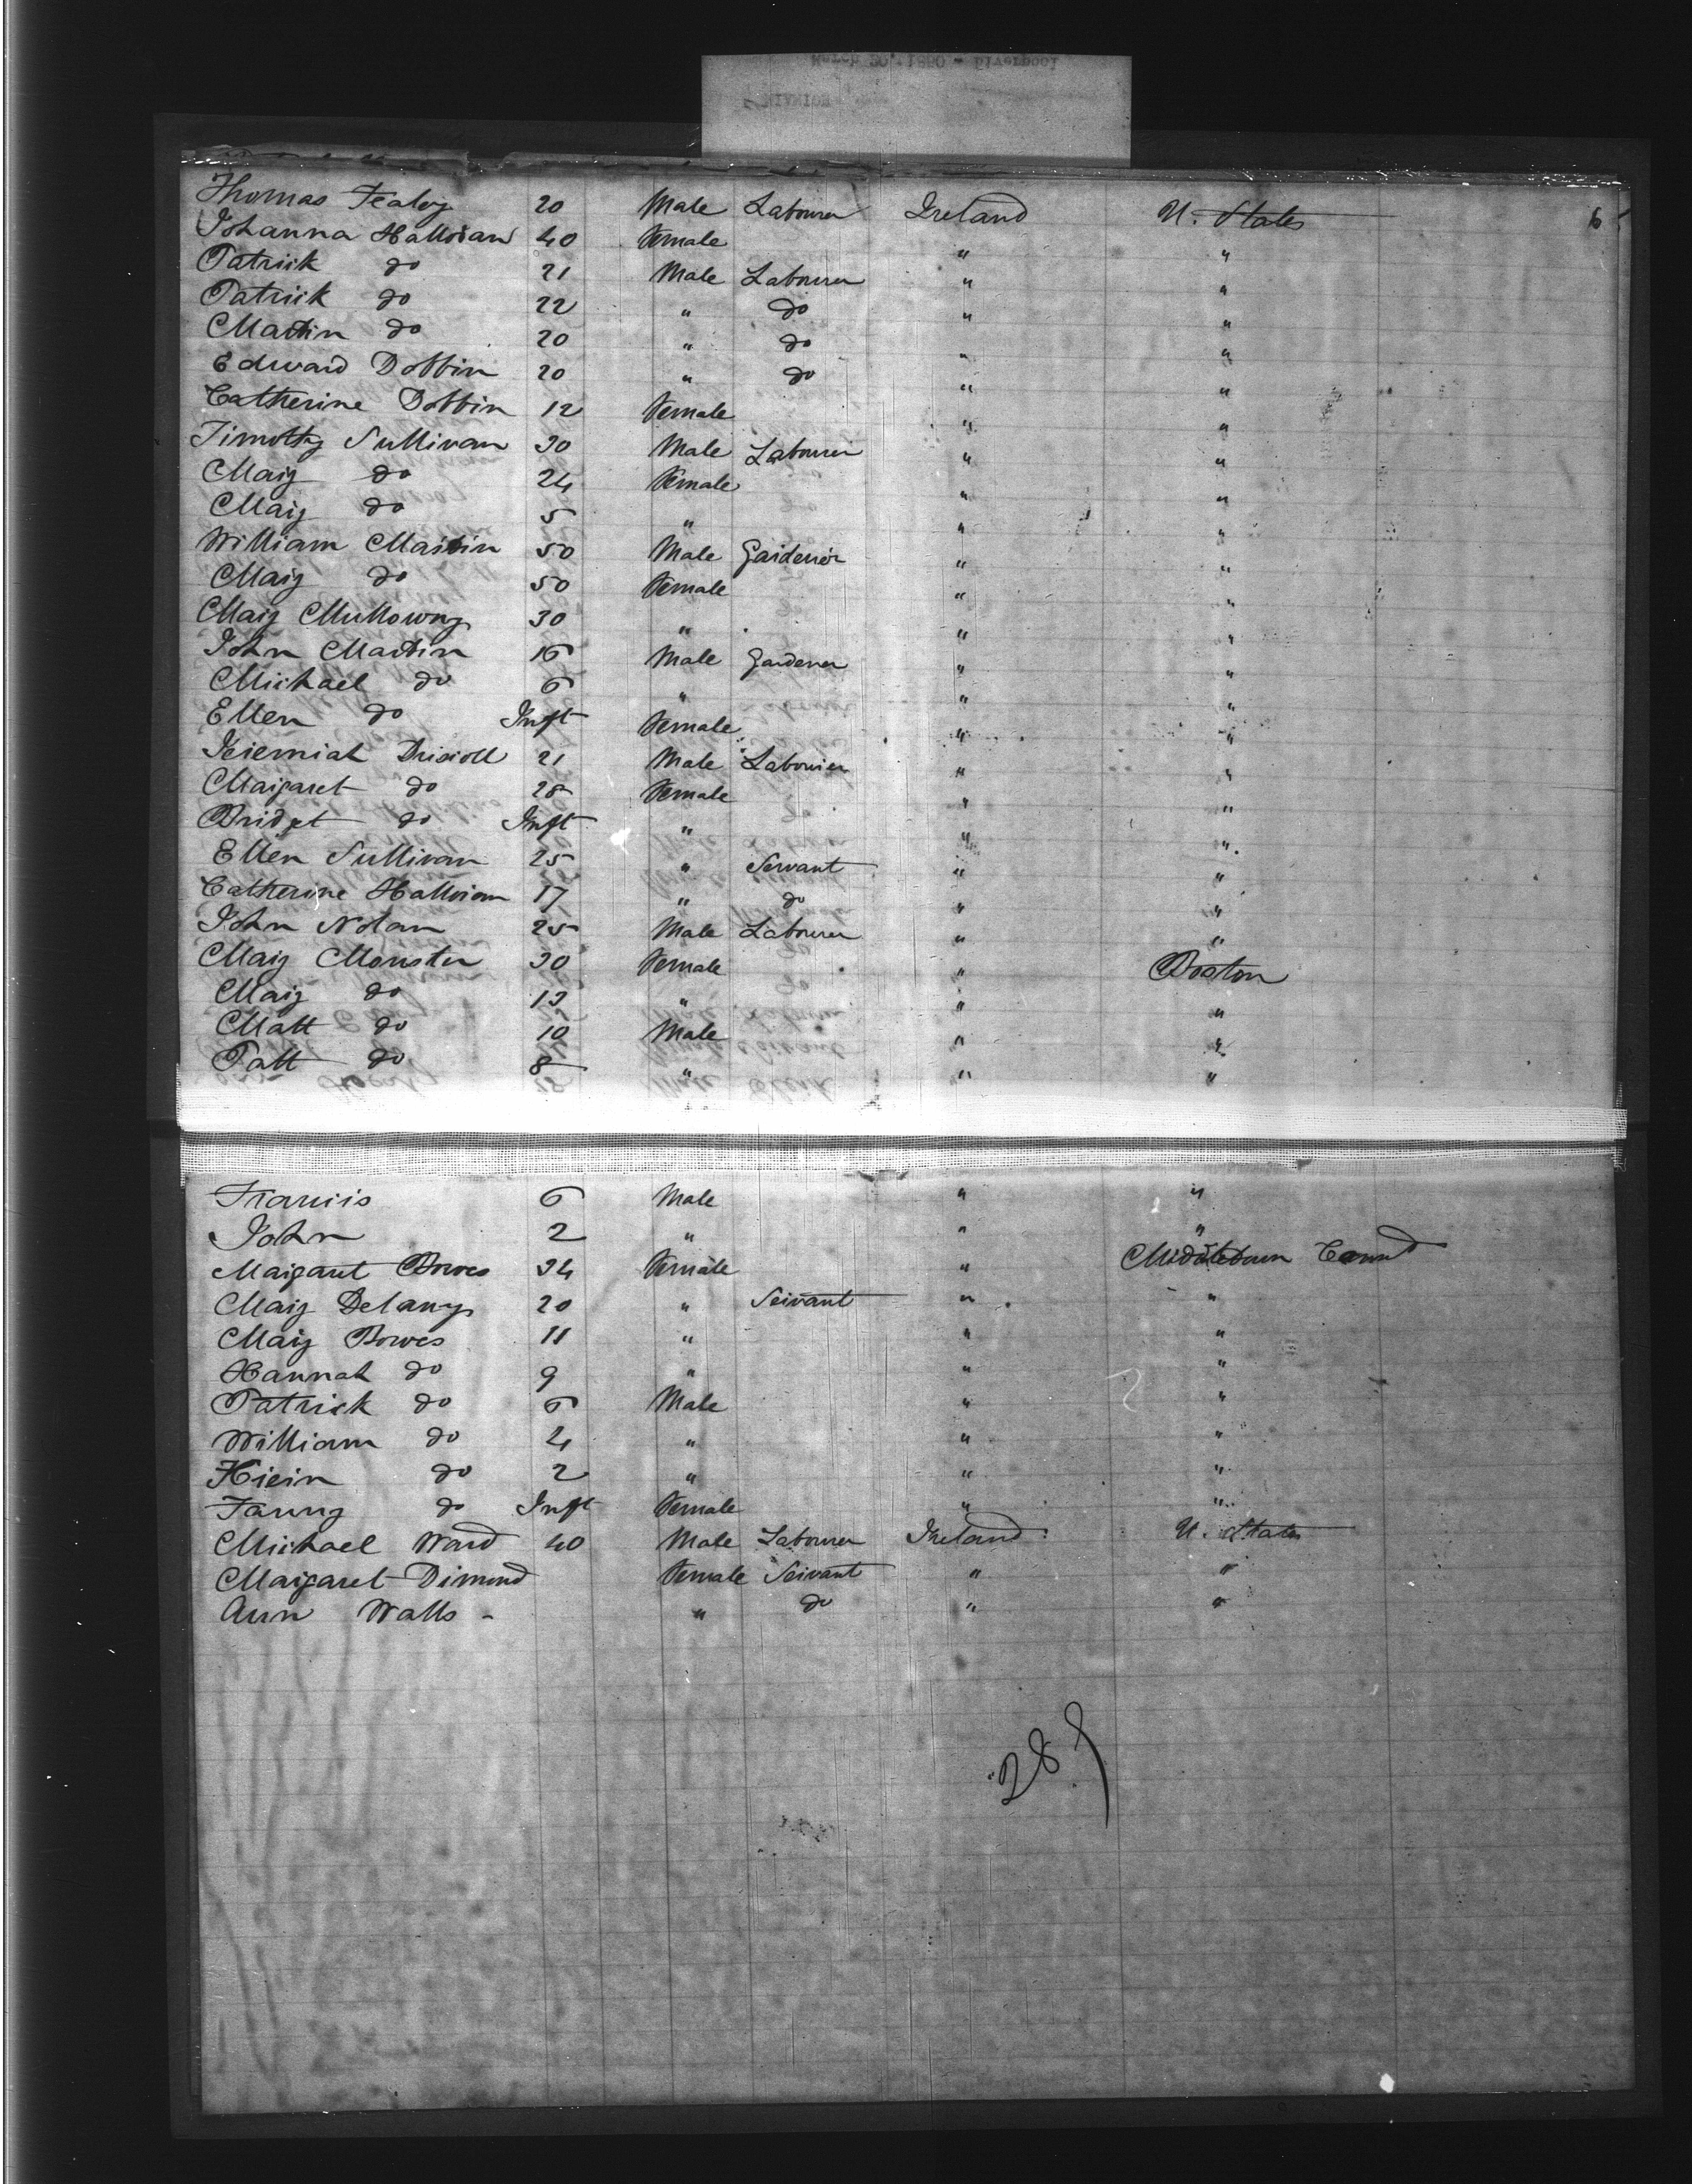 March 20, 1850 - Liverpool
Thomas Fealey 20 Male Labourer Ireland U. States 6
Johanna Halloran 40 Female " "
Patrick do 21 Male Labourer " "
Patrick do 22 " do " "
Martin do 20 " do " "
Edward Dobbin 20 " do " "
Catherine Dobbin 12 Female " "
Timothy Sullivan 30 Male Labourer " "
Mary do 24 Female " "
Mary do 5 " " "
William Martin 50 Male Gardener " "
Mary do 50 Female " "
Mary Mullowny 30 " " "
John Martin 16 Male Gardener " "
Michael do 6 " " "
Ellen do Inft Female " "
Jeremiah Driscoll 21 Male Labourer " "
Margaret do 28 Female " "
Bridget do Inft " " "
Ellen Sullivan 25 " Servant " "
Catherine Halloran 17 " do " "
John Nolan 25 Male Labourer " "
Mary Monster 30 Female " Boston
Mary do 13 " " "
Matt do 10 Male " "
Patt do 8 " " "
Francis 6 Male " "
John 2 " " "
Margaret Bowes 34 Female " Middletown Connt
Mary Delany 20 " Servant " "
Mary Bowes 11 " " "
Hannah do 9 " " "
Patrick do 6 Male " "
William do 4 " " "
do 2 " " "
Fanny do Inft Female " "
Michael Ward 40 Male Labourer Ireland U. States
Margaret Dimond Female Servant " "
Ann Walls - " do " "